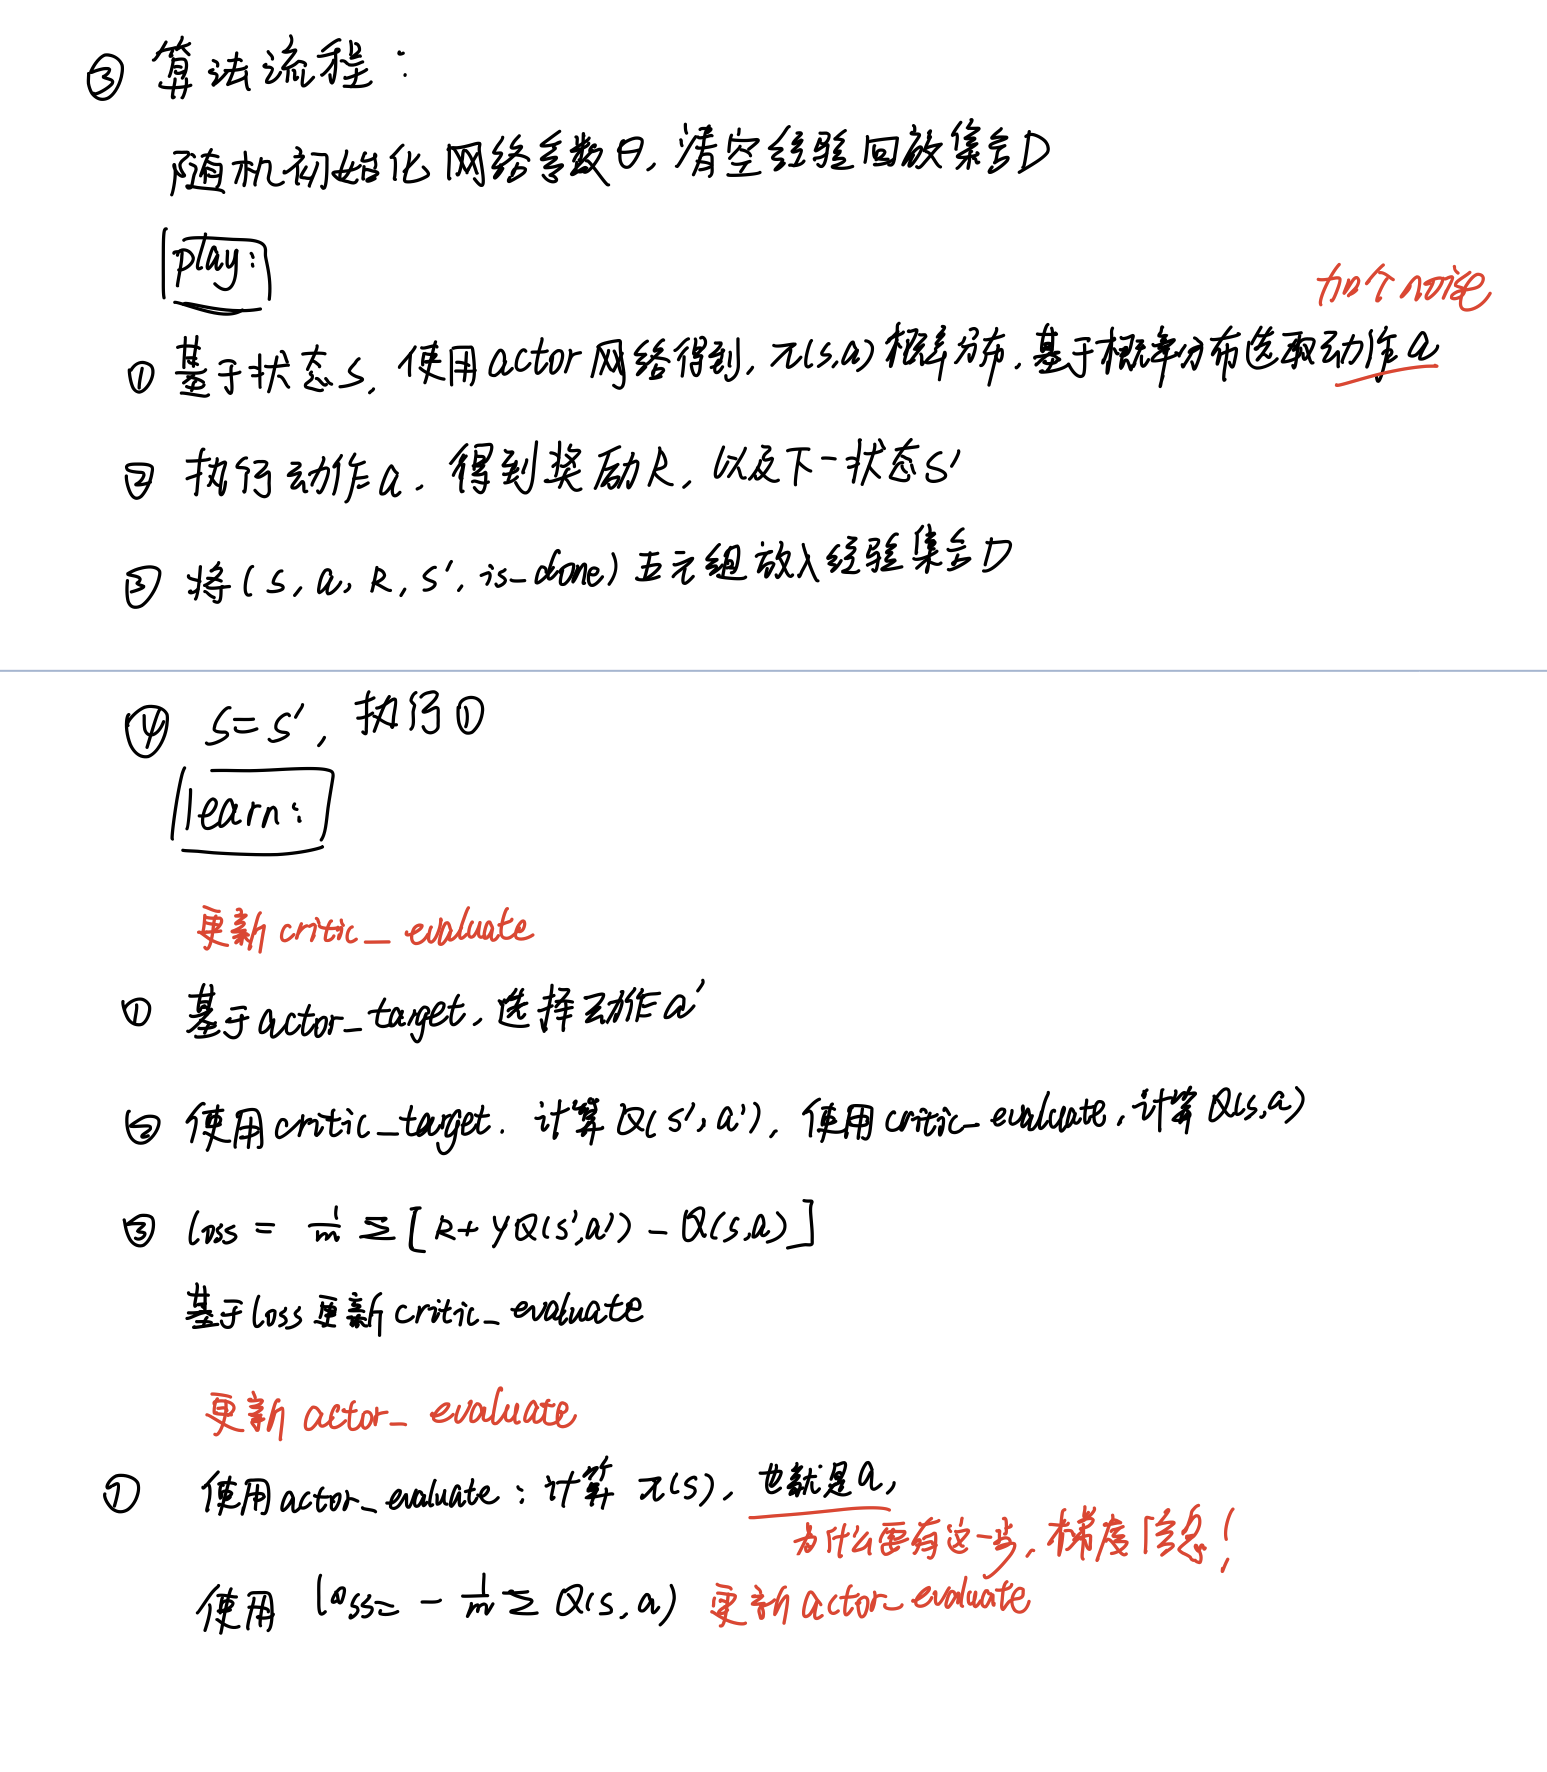 ③ 算法流程：
随机初始化网络参数θ，清空经验回放集合D
play：
加个noise
① 基于状态S，使用actor网络得到，π(s,a)概率分布，基于概率分布选取动作a
② 执行动作a，得到奖励R，以及下一状态S'
③ 将(s, a, R, s', is_done)五元组放入经验集合D
④ S=S'，执行①
learn：
更新critic_evaluate
① 基于actor_target，选择动作a'
② 使用critic_target. 计算Q(s', a')，使用critic_evaluate，计算Q(s,a)
③ loss = 1/m Σ[R+γQ(s',a') - Q(s,a)]
基于loss更新critic_evaluate
更新actor_evaluate
① 使用actor_evaluate：计算π(s)，也就是a，
为什么要有这一步，梯度信息！
使用 loss= - 1/m Σ Q(s,a) 更新actor_evaluate